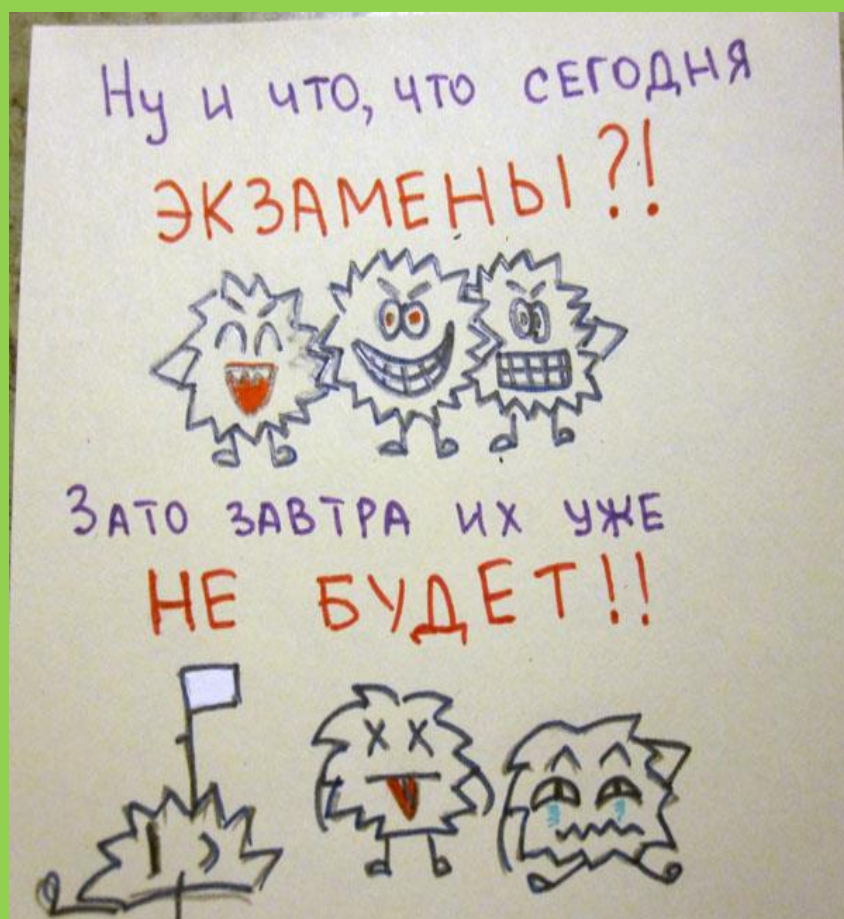 Ну и что, что СЕГОДНЯ
ЭКЗАМЕНЫ?!
ЗАТО ЗАВТРА ИХ УЖЕ
НЕ БУДЕТ!!